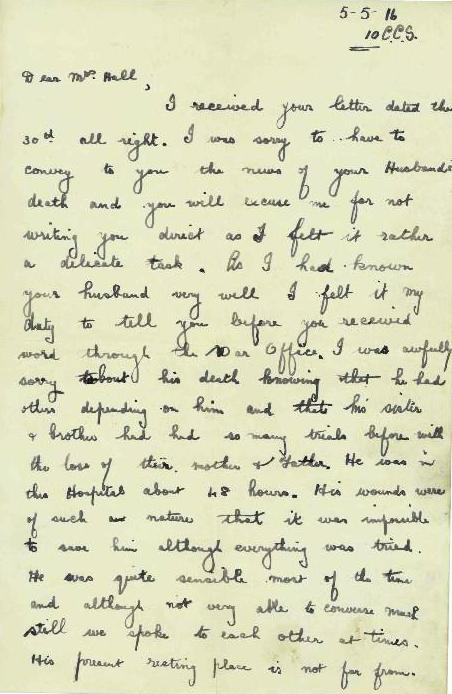 5-5-16
10 C.C.S.
Dear Mrs. Hall,
I received your letter dated the
30th all right. I was sorry to have to
convey to you the news of your Husbands
death and you will excuse me for not
writing you direct as I felt it rather
a delicate task. As I had known
your husband very well I felt it my
duty to tell you before you received
word through the War Office. I was awfully
sorry about his death knowing that he had
others depending on him and that his sister
& brother had had so many trials before with
the loss of their mother & Father. He was in
this Hospital about 48 hours. His wounds were
of such a nature that it was impossible
to save him although everything was tried.
He was quite sensible most of the time
and although not very able to converse much
still we spoke to each other at times.
His present resting place is not far from.